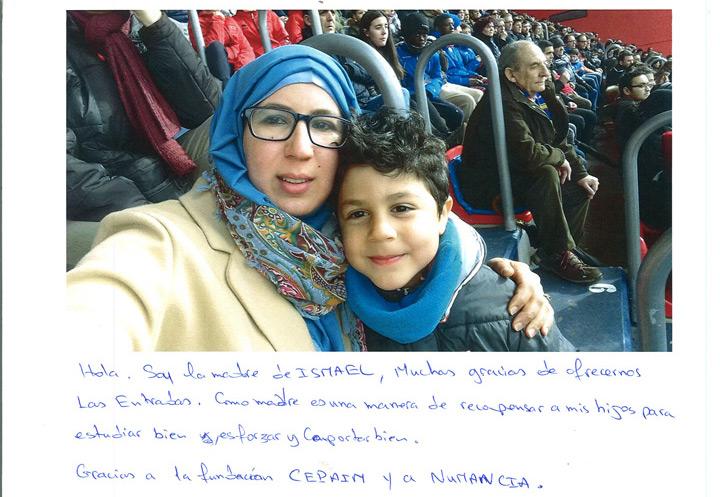 Hola. Soy la madre de ISMAEL, Muchas gracias de ofrecernos
Las Entradas. Como madre es una manera de recompensar a mis hijos para
estudiar bien y, esforzar y Comportar bien.
Gracias a la fundación CEPAIM y a NUMANCIA.